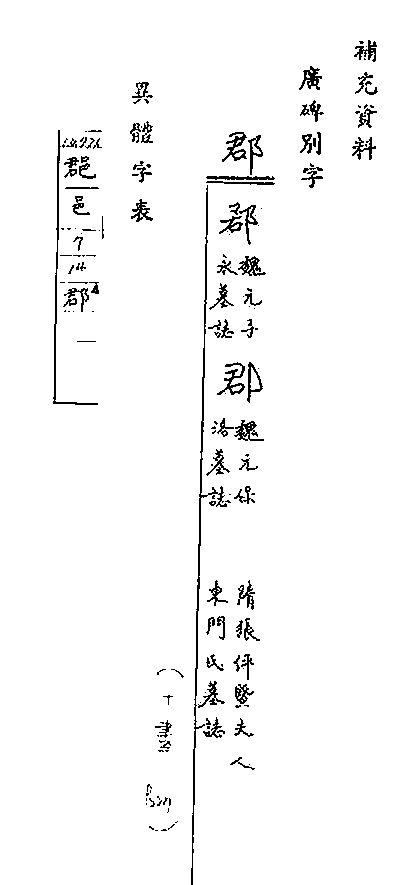 補充資料
廣碑別字
郡
郡
魏元子
永墓誌
郡
魏元保
洛墓誌
隋張伻暨夫人
東門氏墓誌
異體字表
邑
7
14
郡